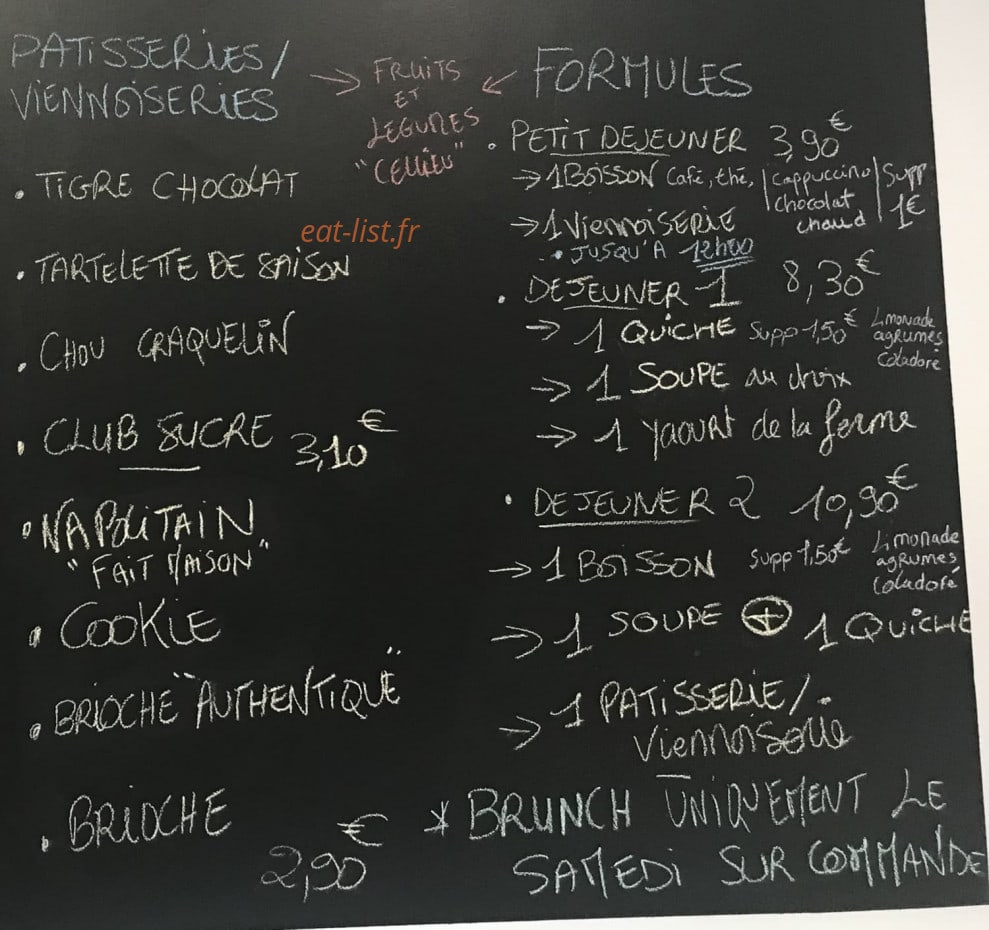 PATISSERIES/
VIENNOISERIES
→ FRUITS ←
ET
LEGUMES
"CELLIEU"
• TIGRE CHOCOLAT
eat-list.fr
• TARTELETTE DE SAISON
• CHOU CRAQUELIN
• CLUB SUCRE 3,10€
• NAPOLITAIN
"FAIT MAISON"
• COOKIE
• BRIOCHE "AUTHENTIQUE"
• BRIOCHE
2,90€
FORMULES
• PETIT DEJEUNER 3,90€
→ 1 BOISSON Café, thé, | Cappuccino | Supp
chocolat 1€
chaud
→ 1 VIENNOISERIE
• JUSQU'A 12H00
• DEJEUNER 1 8,30€
→ 1 QUICHE Supp 1,50€ Limonade
agrumes
Coladoré
→ 1 SOUPE au choix
→ 1 yaourt de la ferme
• DEJEUNER 2 10,90€
→ 1 BOISSON Supp 1,50€ Limonade
agrumes
Coladoré
→ 1 SOUPE + 1 QUICHE
→ 1 PATISSERIE/
Viennoiserie
* BRUNCH UNIQUEMENT LE
SAMEDI SUR COMMANDE